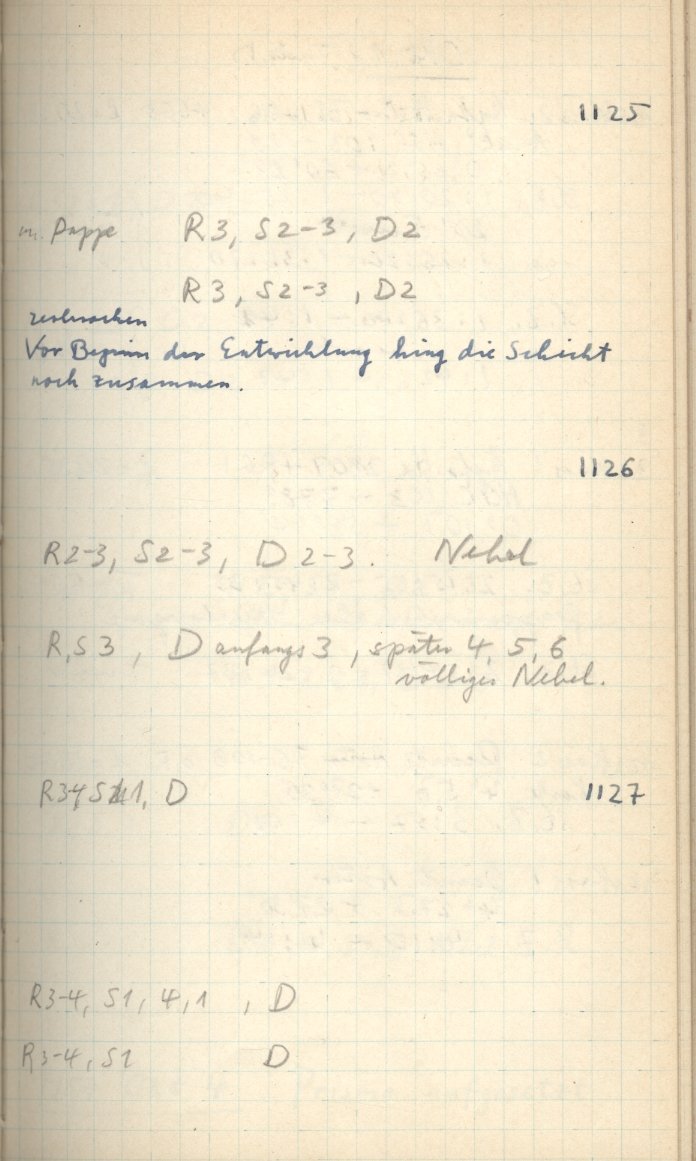 1125
m. Pappe R3, S2-3, D2
R3, S2-3, D2
zerbrochen
Vor Beginn der Entwicklung hing die Schicht
noch zusammen.
1126
R2-3, S2-3, D2-3. Nebel
R,S3, D anfangs 3, später 4, 5, 6
völliger Nebel.
R3-4, S 1, D 1127
R3-4, S1, 4, 1, D
R3-4, S1 D